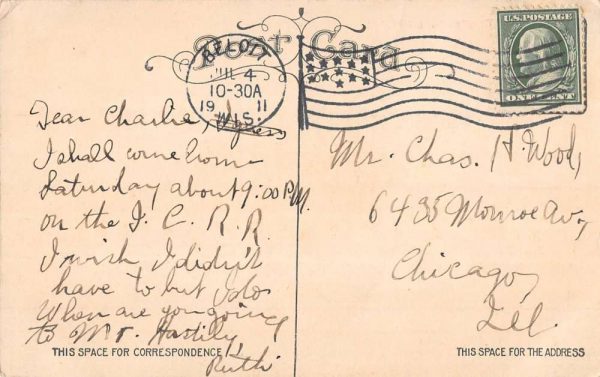 Post Card
BELOIT
JUL 4
10-30A
19 11
WIS.
U.S. POSTAGE
ONE CENT
Dear Charlie, I guess
I shall come home
Saturday about 9:00 P.M.
on the I. C. R. R.
I wish I didn't
have to but I do
When are you going
to Mr. 
Ruth
THIS SPACE FOR CORRESPONDENCE
Mr. Chas. H. Wood,
6435 Monroe Av,
Chicago,
Ill.
THIS SPACE FOR THE ADDRESS